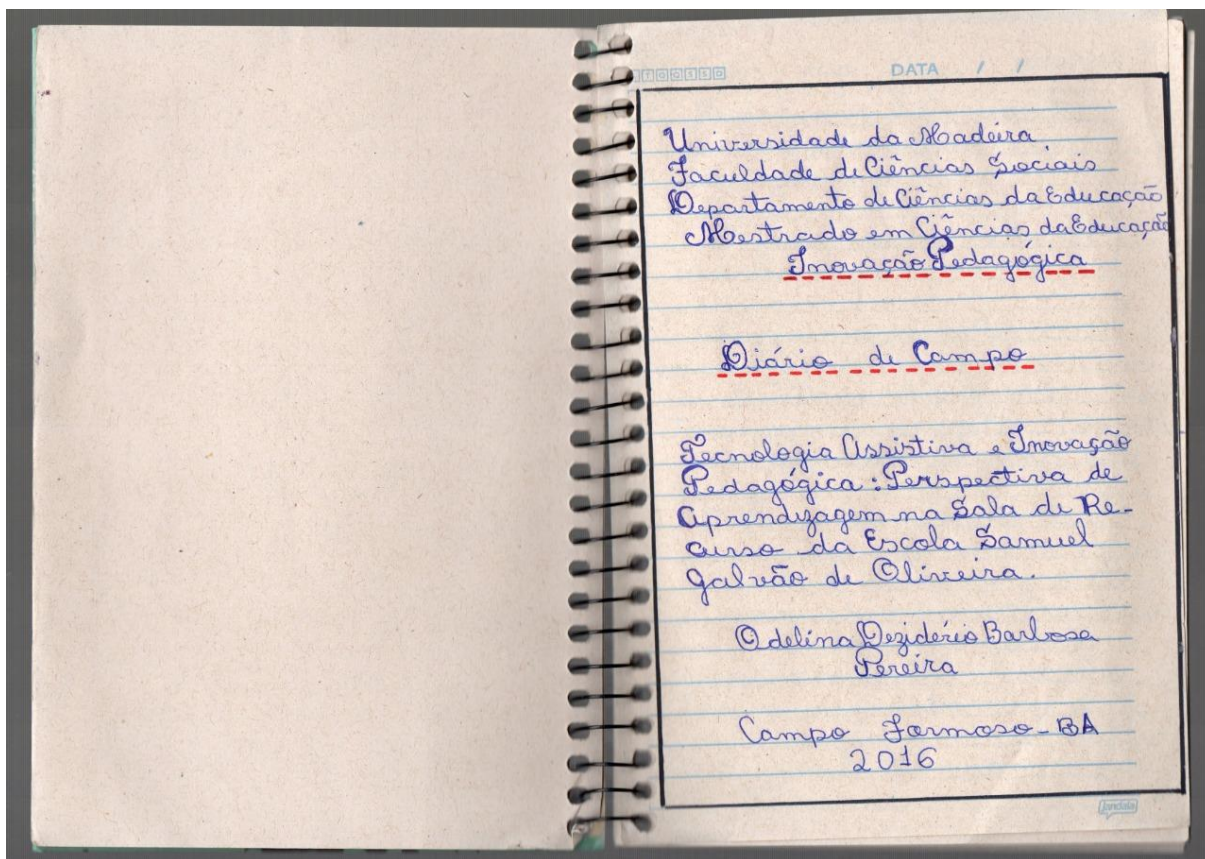 DATA / /
Universidade da Madeira
Faculdade de Ciências Sociais
Departamento de Ciências da Educação
Mestrado em Ciências da Educação
Inovação Pedagógica
Diário de Campo
Tecnologia Assistiva e Inovação
Pedagógica: Perspectiva de
aprendizagem na Sala de Re-
curso da Escola Samuel
Galvão de Oliveira.
Odelina Dezidério Barbosa
Pereira
Campo Formoso - BA
2016
jandaia